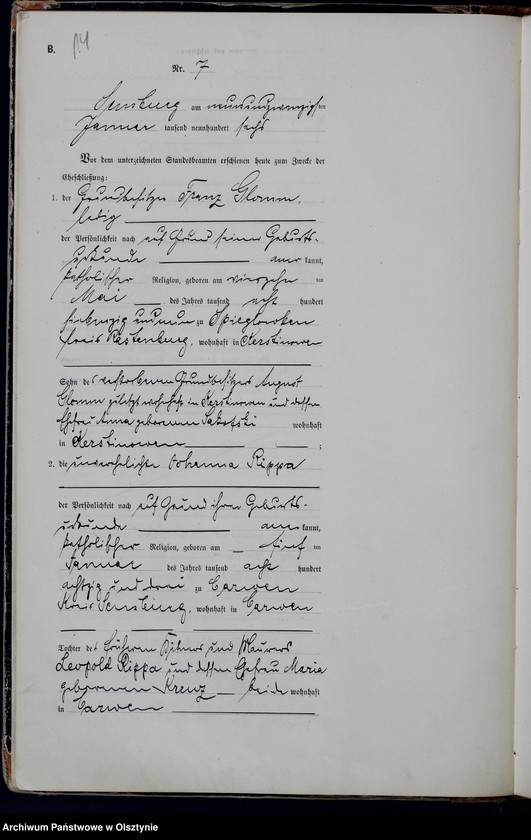 B.
14
Nr. 7
Sensburg am neunundzwanzigsten
Januar tausend neunhundert sechs
Vor dem unterzeichneten Standesbeamten erschienen heute zum Zwecke der
Eheschließung:
1. der Grundbesitzer Franz Glomm,
ledig
der Persönlichkeit nach auf Grund seiner Geburts-
urkunde anerkannt,
katholischer Religion, geboren am vierzehn ten
Mai des Jahres tausend acht hundert
siebenzig und neun zu Spieglowken
Kreis Rastenburg, wohnhaft in Kerstinowen
Sohn des verstorbenen Grundbesitzers August
Glomm zuletzt wohnhaft in Kerstinowen und dessen
Ehefrau Anna geborenen wohnhaft
in Kerstinowen ;
2. die unverehelichte Johanna Rippa
der Persönlichkeit nach auf Grund ihrer Geburts-
urkunde anerkannt,
katholischer Religion, geboren am fünf ten
Januar des Jahres tausend acht hundert
achtzig und drei zu Carwen
Kreis Sensburg, wohnhaft in Carwen
Tochter des früheren und Maurers
Leopold Rippa und dessen Ehefrau Maria
geborenen Krenz beide wohnhaft
in Carwen
Archiwum Państwowe w Olsztynie